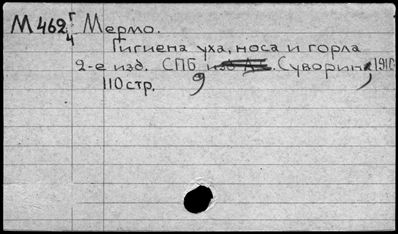 М 462 г/4 Мермо.
Гигиена уха, носа и горла
2-е изд. СПБ, Суворин, 1910
110 стр.